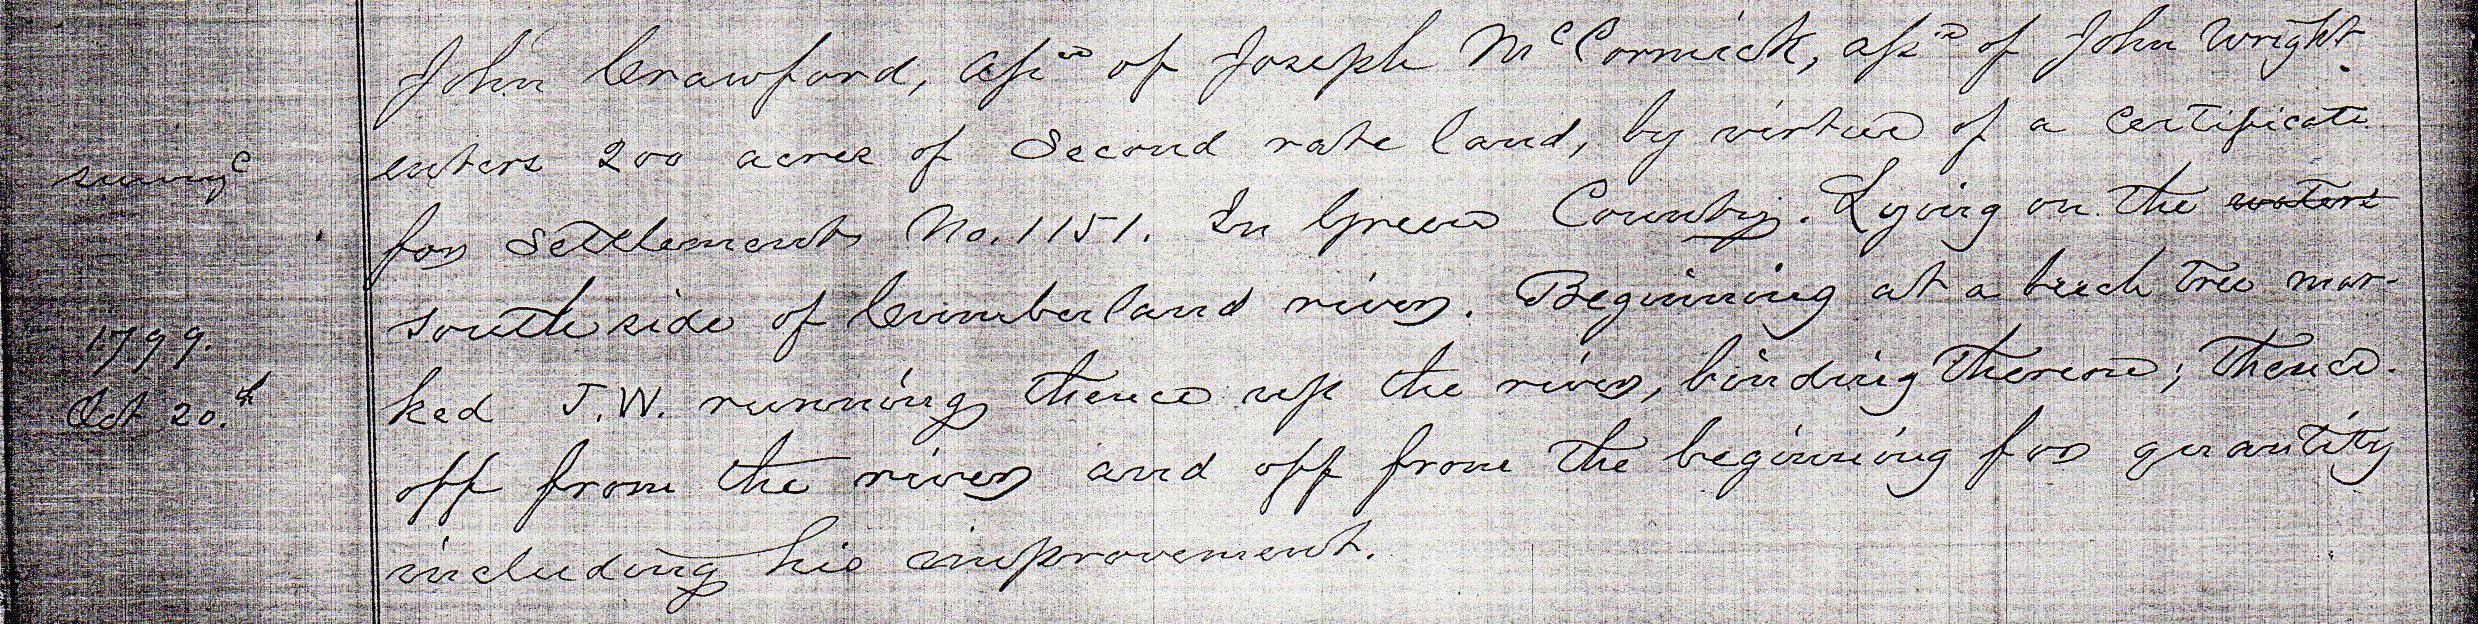 John Crawford, Assee of Joseph McCormick, assee of John Wright.
enters 200 acres of Second rate land, by virtue of a certificate
survyd
for settlement No. 1151. In Green County. Lying on the waters
south side of Cumberland river. Beginning at a beech tree mar-
1799.
ked J.W. running thence up the river, binding thereon; thence.
Oct 20.th
off from the river and off from the beginning for quantity
including his improvement.